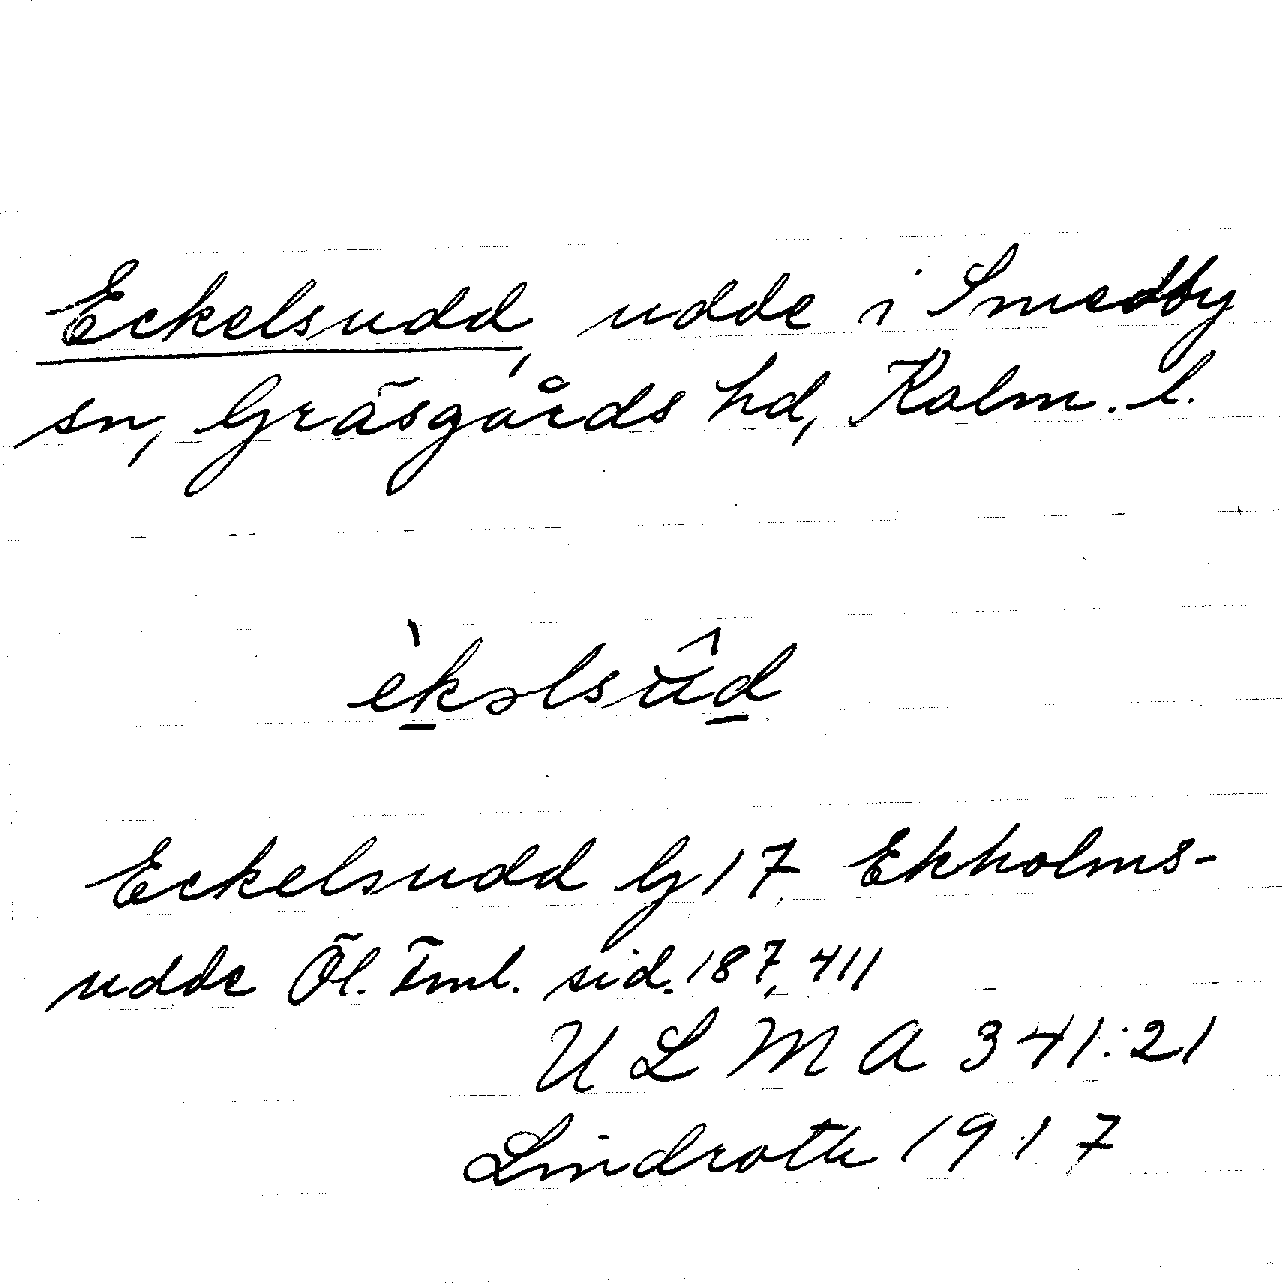 Eckelsudd, udde i Smedby
sn, Gräsgårds hd, Kalm. l.
èkəlsûd
Eckelsudd G 17 Ekholms-
udde Öl. Fml. sid. 187, 411
ULMA 341:21
Lindroth 1917